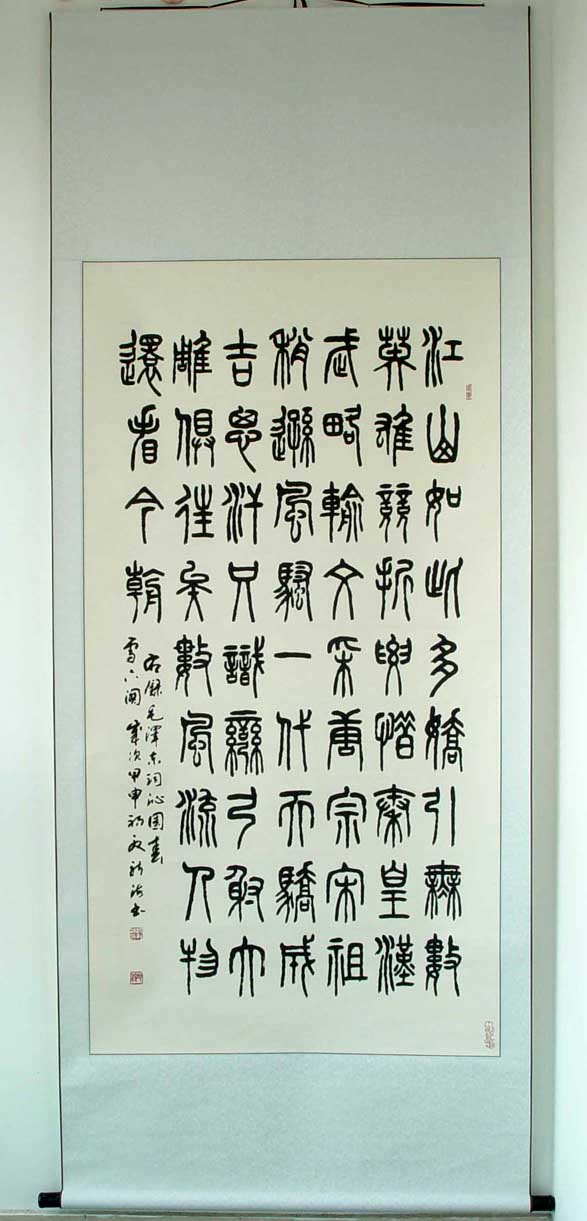 江山如此多嬌引無數
英雄競折腰惜秦皇漢
武略輸文采唐宗宋祖
稍遜風騷一代天驕成
吉思汗只識彎弓射大
雕俱往矣數風流人物
還看今朝
右錄毛澤東詞沁園春
雪下闋 歲次甲申初夏